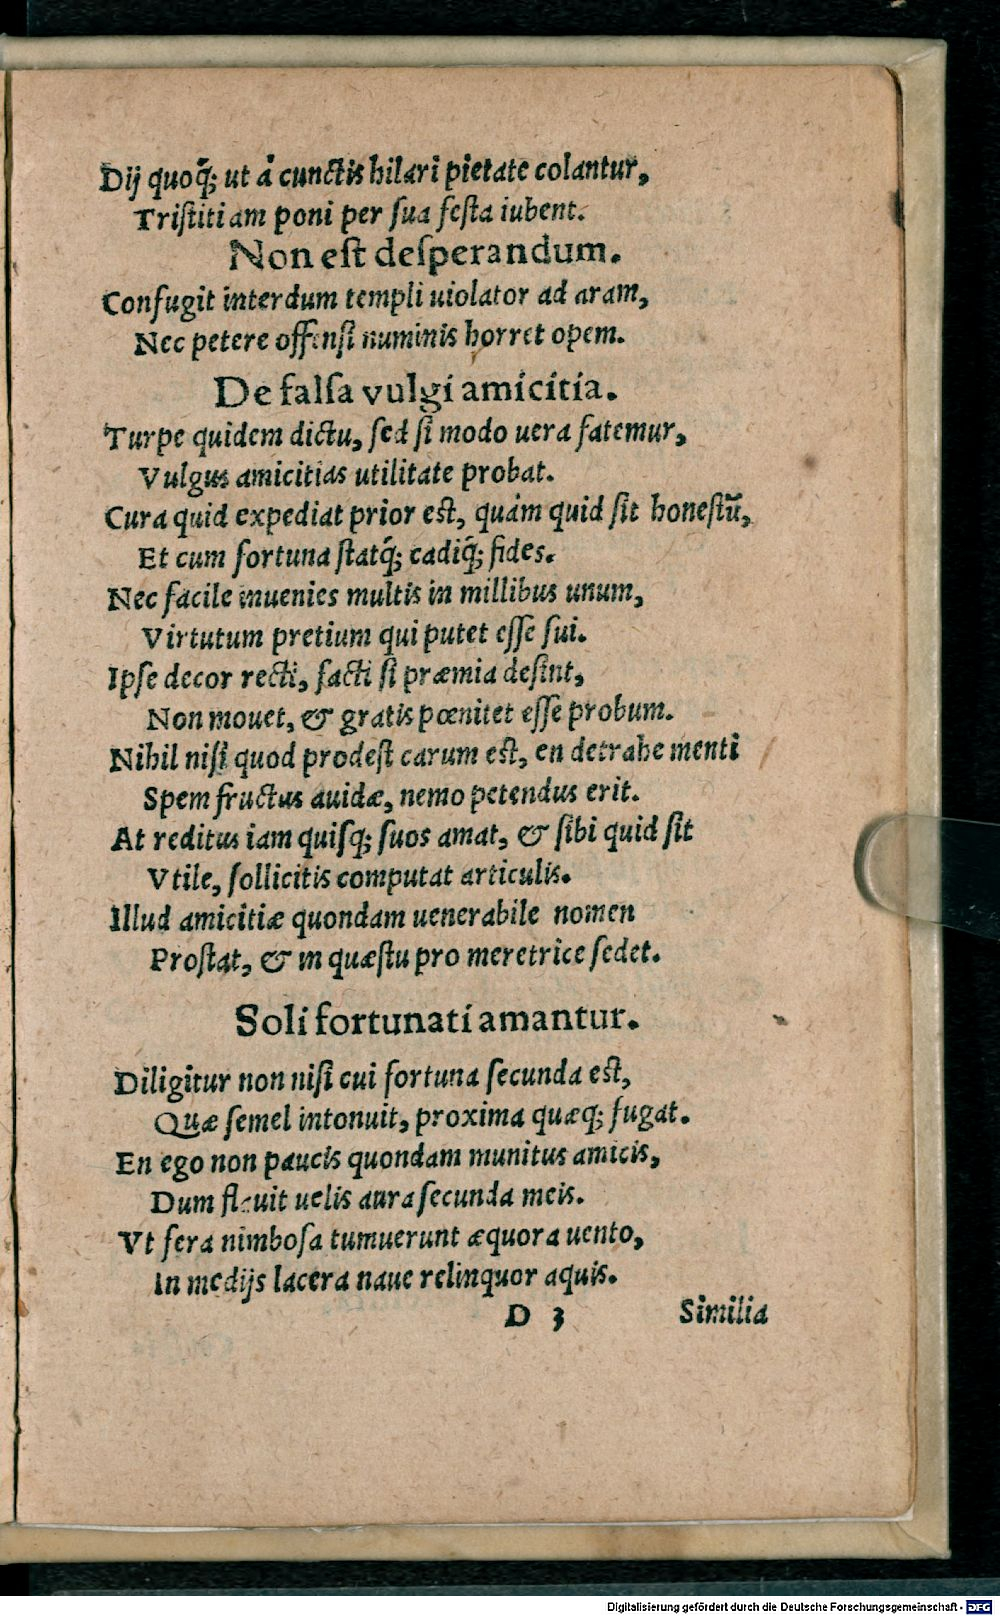 Dij quoq́; ut à cunctis hilari pietate colantur,
Tristitiam poni per sua festa iubent.
Non est desperandum.
Confugit interdum templi uiolator ad aram,
Nec petere offensi numinis horret opem.
De falsa vulgi amicitia.
Turpe quidem dictu, sed si modo uera fatemur,
Vulgus amicitias utilitate probat.
Cura quid expediat prior est, quàm quid sit honestũ,
Et cum fortuna statq́; cadiq́; fides.
Nec facile inuenies multis in millibus unum,
Virtutum pretium qui putet esse sui.
Ipse decor recti, facti si præmia desint,
Non mouet, & gratis pœnitet esse probum.
Nihil nisi quod prodest carum est, en detrahe menti
Spem fructus auidæ, nemo petendus erit.
At reditus iam quisq; suos amat, & sibi quid sit
Vtile, sollicitis computat articulis.
Illud amicitiæ quondam uenerabile nomen
Prostat, & in quæstu pro meretrice sedet.
Soli fortunati amantur.
Diligitur non nisi cui fortuna secunda est,
Quæ semel intonuit, proxima quæq; fugat.
En ego non paucis quondam munitus amicis,
Dum flauit uelis aura secunda meis.
Vt fera nimbosa tumuerunt æquora uento,
In medijs lacera naue relinquor aquis.
D 3 Similia
Digitalisierung gefördert durch die Deutsche Forschungsgemeinschaft - DFG